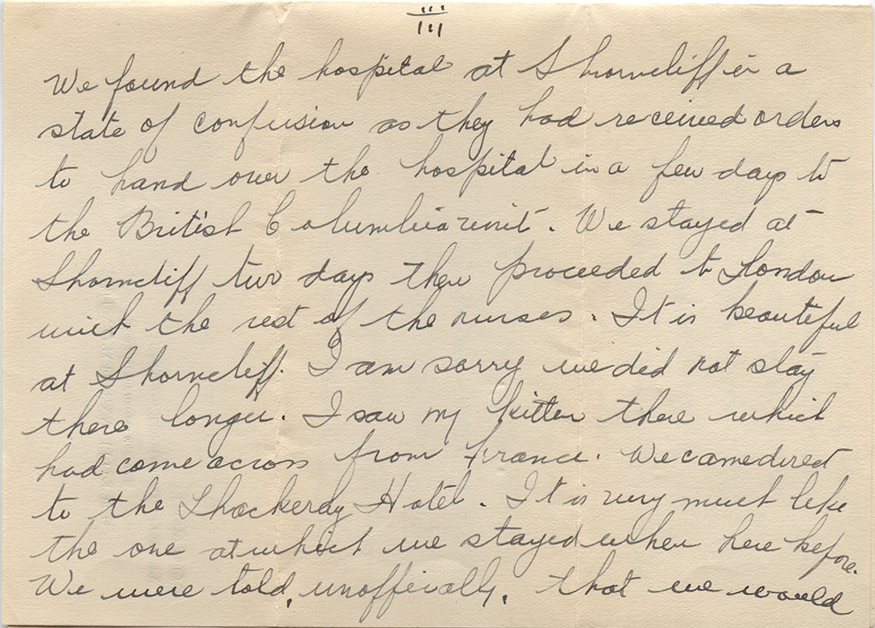 III
We found the hospital at Shorncliff in a
state of confusion as they had received orders
to hand over the hospital in a few days to
the British Columbia unit. We stayed at
Shorncliff two days then proceeded to London
with the rest of the nurses. It is beautiful
at Shorncliff. I am sorry we did not stay
there longer. I saw my kitten there which
had come across from France. We came direct
to the Thackeray Hotel. It is very much like
the one at which we stayed when here before.
We were told, unofficially, that we would